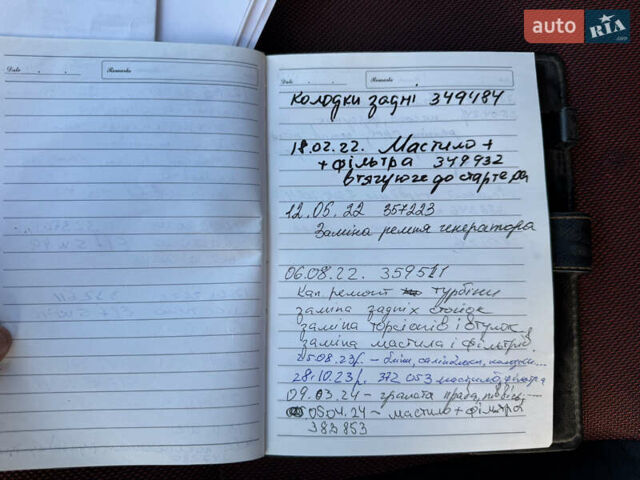 auto RIA .com
Date Remarks
Date Remarks
Колодки задні 349484
18.02.22. Мастило +
+ фільтра 349932
втягуюче до стартера
12.05.22 357223
Заміна ремня генератора
06.08.22. 359511
Кап. ремонт турбіни
заміна задніх стойок
заміна торсіонів і втулок
заміна мастила і фільтрів
25.08.23р. –
28.10.23р. 372 053 мастило, фільтра
09.03.24 – граната права,
05.04.24 – мастило + фільтра
382853